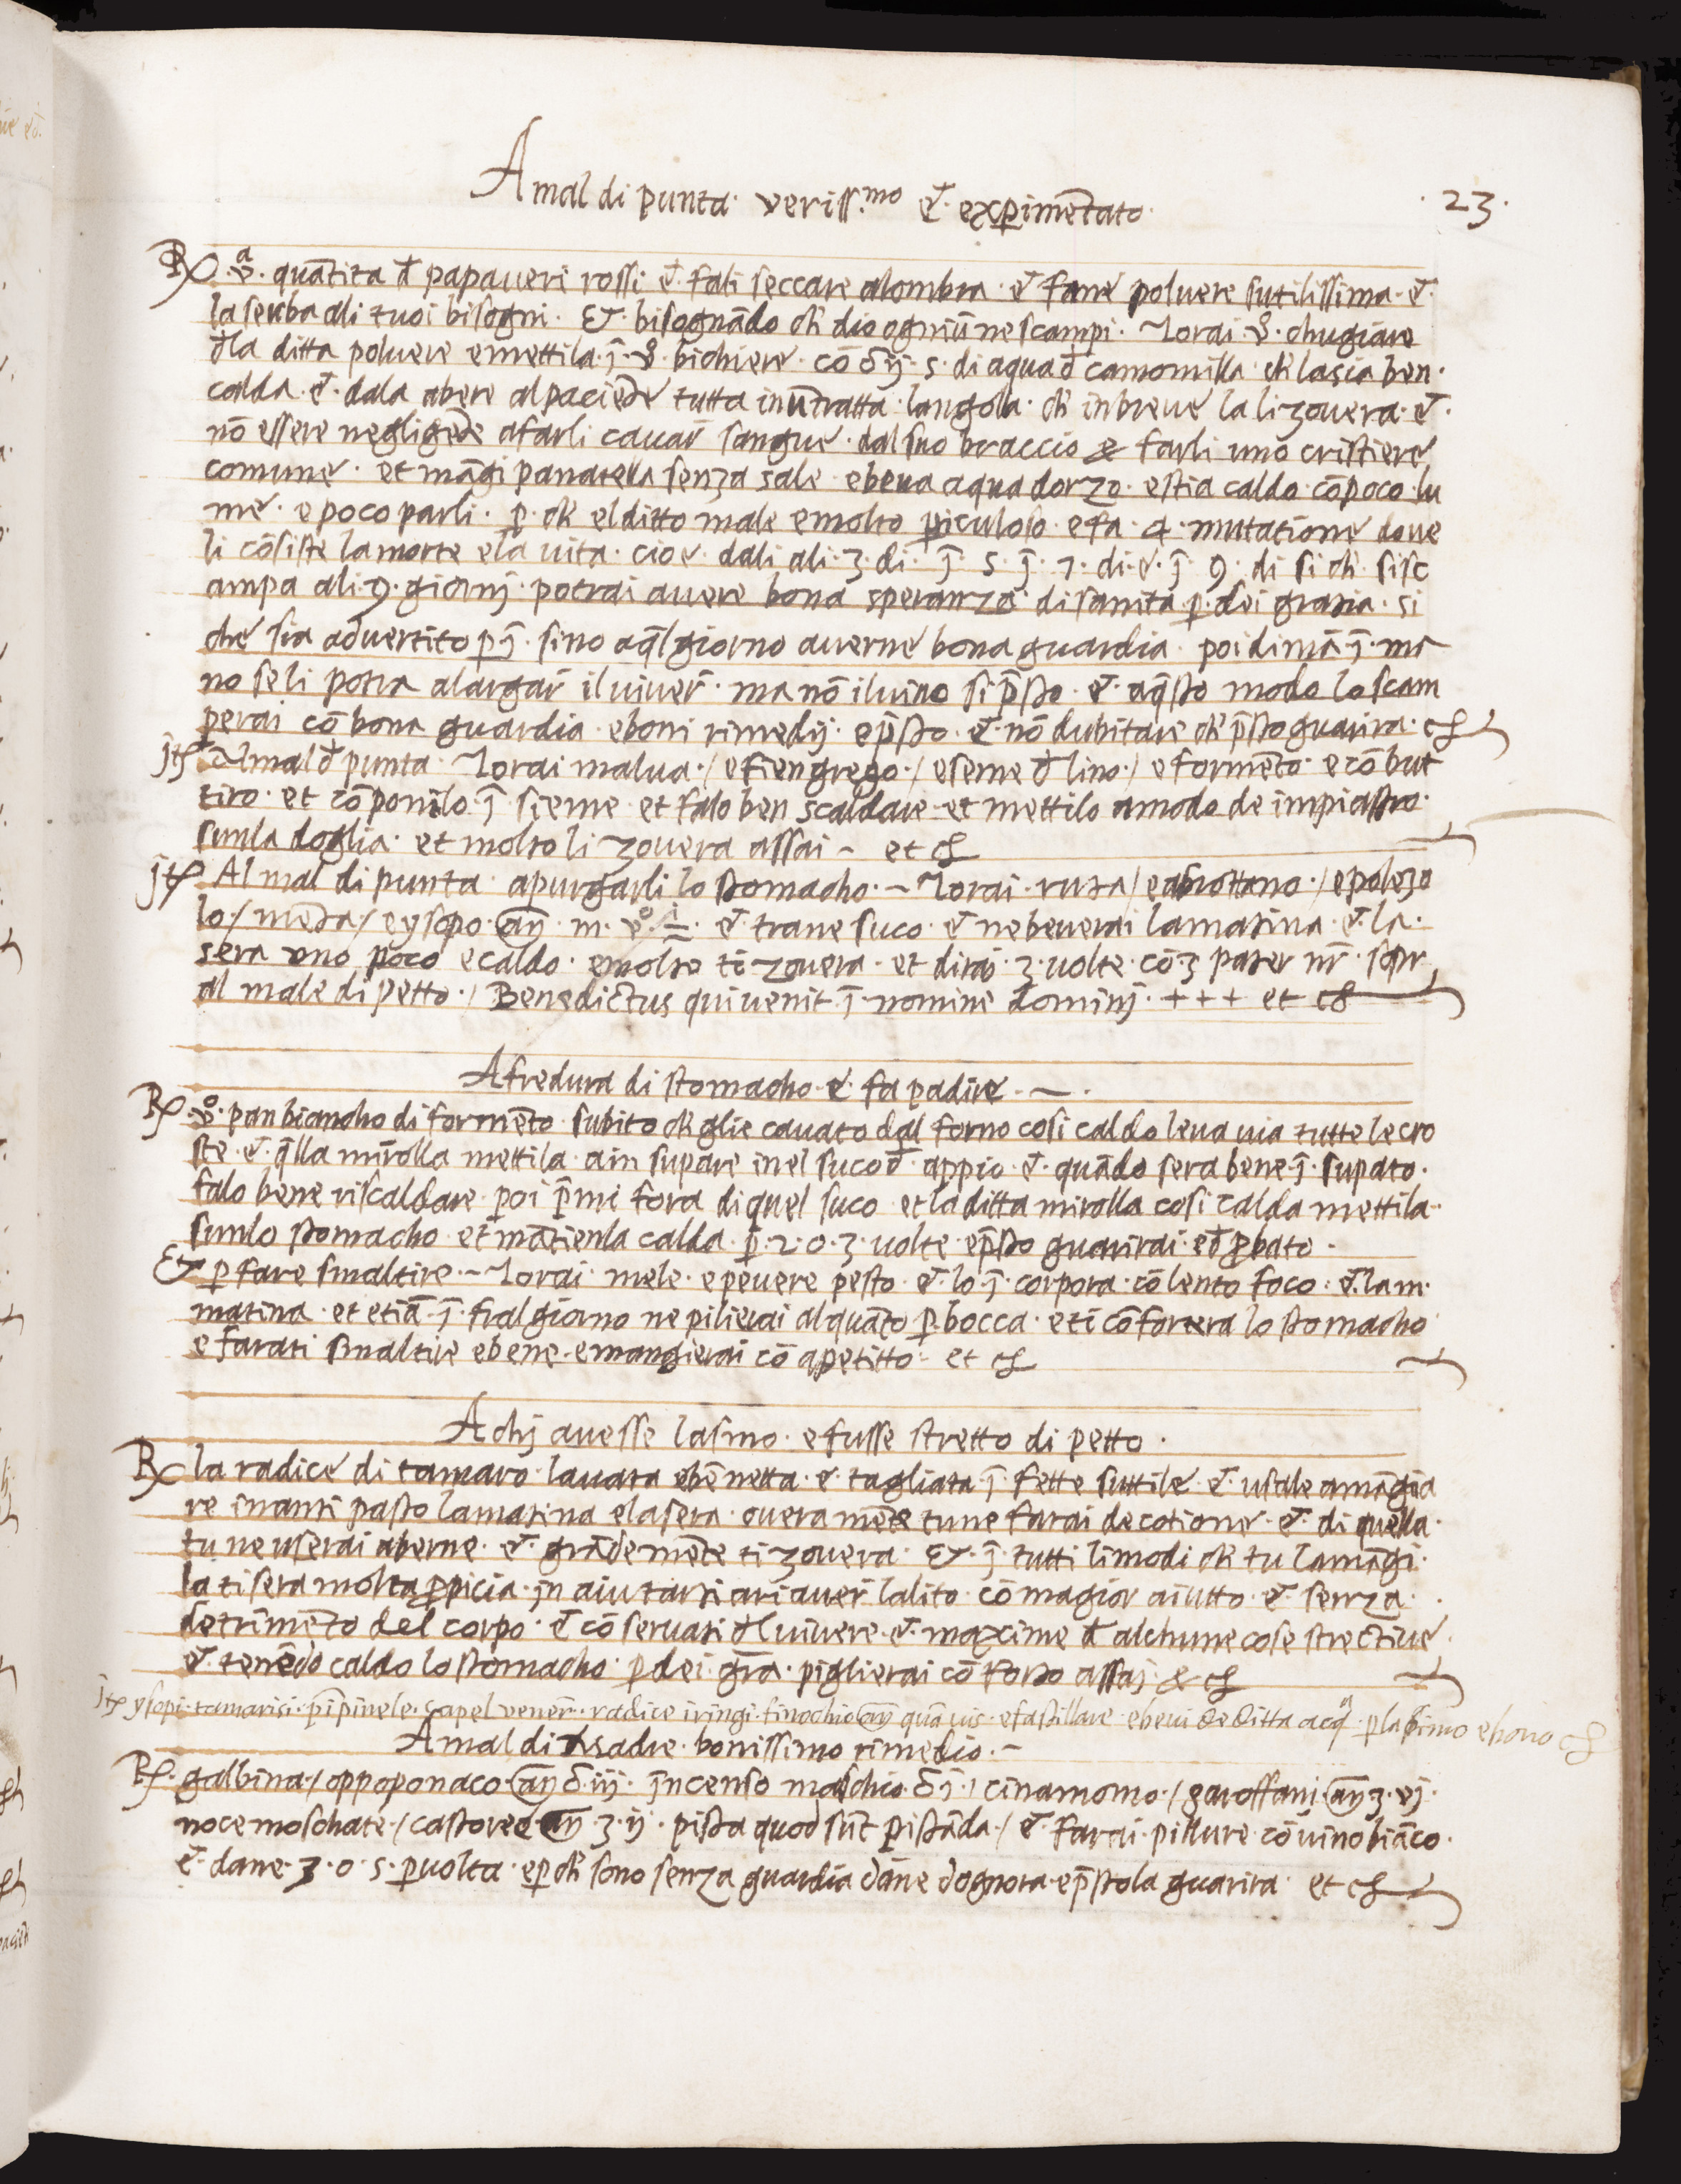 A mal di punta · veriss.mo et · experimẽtato ·
· 23 ·
Rx · va · quãtita đ papaueri rossi et · fali seccare alombra · et fane polvere sutilissima · et ·
la serba alli tuoi bisogni · Et · bisognãdo ch dio ogniũ ne scampi · Torai · vo · chugiare
đla ditta polvere e mettila · j̃ · vo · bichiere · cõ ℥ij · s · di aqua đ camomilla ch lasia ben ·
calda · et · dala abere al paciẽte tutta in ũ tratta · langolla · ch in breve la li zovera · et ·
nõ essere negligẽte a farli cavar̃ sangue · dal suo braccio & farli uno cristiere
comune · et mãgi panatella senza sale · e beva aqua dorzo · e stia caldo · cõ poco · lu
me · e poco parli · p · ch el ditto male e molto piculoso · e fa · 4 · mutatione dove
li cõsiste la morte e la vita · cioe · dali ali · 3 · di · j̃ · 5 · j̃ · 7 · di · e · j̃ · 9 · di si ch · si sc
ampa ali · 9 · giornj · potrai avere bona speranza di sanita · p · dei grazia · si
che sia advertito p j̃ · sino a q̃l giorno averne bona guardia · poi di mã · j̃ · mã
no se li potra alargar̃ il viver̃ · ma nõ il vino si p̃sto · et · a q̃sto modo lo scam
perai cõ bona guardia · e boni rimedij · e p̃sto · et · nõ dubitare ch p̃sto guarira · &
jtꝭ Al mal đ punta · Torai malva · / e fien grego · / e seme đ lino · / e formẽto · e cõ but
tiro · et cõponilo · j̃ · sieme · et falo ben scaldare · et mettilo a modo de impiastro ·
sun la doglia · et molto li zovera assai ~ et &
jtꝭ Al mal di punta · a purgarli lo stomacho · ~ Torai · ruta / e abrottano · / e polezo
lo · / mẽta · / e ysopo · añ · m · vo · i · et · trane suco · et ne beverai la matina · et · la ·
sera uno poco e caldo · e molto ti zovera · et dirai · 3 · volte · cõ 3 pater nr̃ · sopr
al male di petto · / Benedictus qui venit · j̃ · nomine dominj · + + + et &
A fredura di stomacho · e · fa padire · ~ ·
Rx · vo · pan biancho di formẽto · subito ch glie cavato dal forno cosi caldo leva via tutte le cro
ste · et · q̃lla mirolla mettila · a in supare in el suco đ · appio · et · quãdo sera bene · j̃ · supato ·
falo bene riscaldare · poi p̃mi fora di quel suco · et la ditta mirolla cosi calda mettila ·
sun lo stomacho · et mãtienla calda · p · 2 · o · 3 · volte · e p̃sto guarirai · et pbato ·
Et p fare smaltire · ~ Torai · mele · e pevere pesto · et · lo j̃ · corpora · cõ lento foco · et · la m ·
matina · et etiã · j̃ · fra l giorno ne pilierai alquãto p · bocca · e ti cõfortera lo stomacho
e farati smaltire e bene · e mangierai cõ apetitto · et &
A chj avesse lasmo · e fusse stretto di petto ·
Rx la radice di tamaro · lavata e bẽ netta · e · tagliata · j̃ · fette suttile · et · usale a mãgia
re inanti pasto la matina e la sera · overamẽte tu ne farai decotione · et · di quella ·
tu ne userai a berne · et · grãdemẽte ti zovera · Et · j̃ · tutti li modi ch tu la mãgi ·
la ti sera molta ppicia · jn aiutarti a ri aver̃ lalito · cõ magior aiutto · et · senza ·
detrimẽto del corpo · et cõservati đl vivere · et · maxime đ alchune cose strective ·
et · tenẽdo caldo lo stomacho · p dei · gr̃a · piglierai cõforto assaj · & &
jtꝭ ysopi · tamarisi · pipinele · capel vener̃ · radice iringi · finochio añ quã vis · e fa stillare · e bevi de ditta acq̃ · p lasimo e bono &
A mal di · bonissimo rimedio · ~
Rx · galbina · / oppoponaco · añ ℥ · iij · jncenso maschio ℥ j · / cinamomo · / garoffani · añ ʒ · vj ·
noce moschate · / castoreo añ · ʒ · ij · pista quod sũt pistãda · / et · farai · pillure cõ vino biãco ·
et · dane · 3 · o · 5 · p volta · e p ch sono senza guardia dãne dognora · e p̃sto la guarira · et &